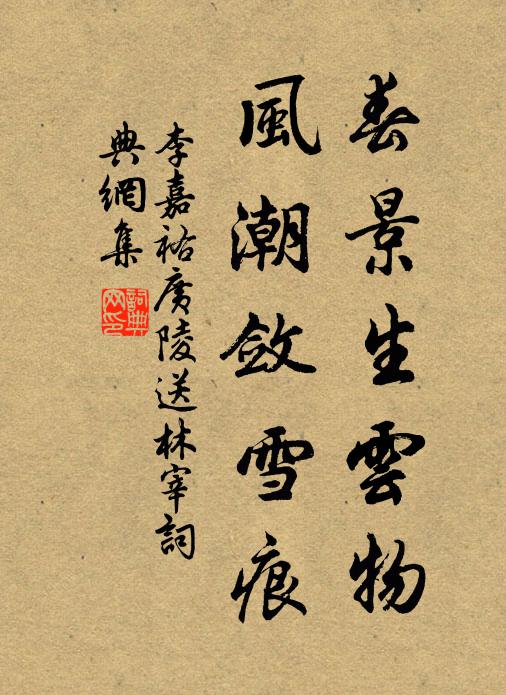 春景生雲物
風潮斂雪痕
李嘉祐廣陵送林宰詞
典網集
詞典網印